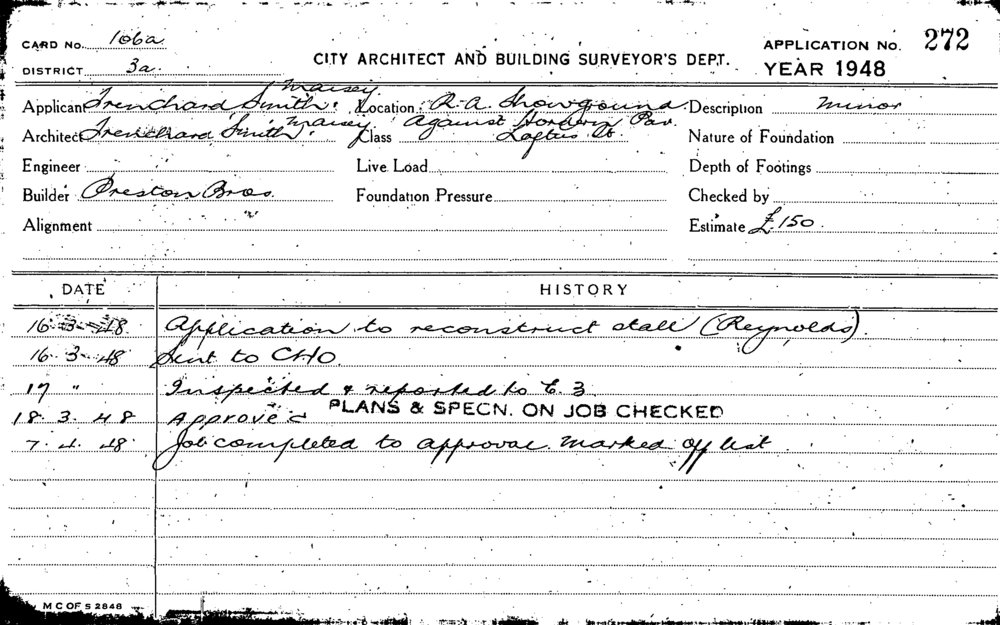 CARD No. 106a
DISTRICT 3a
CITY ARCHITECT AND BUILDING SURVEYOR'S DEPT.
APPLICATION No. 272
YEAR 1948
Applicant Trenchard Smith & Maisey Location R.A. Showground Description Minor
Architect Trenchard Smith & Maisey Class Against Hordern Pav. Loftus St. Nature of Foundation
Engineer Live Load Depth of Footings
Builder Preston Bros. Foundation Pressure Checked by
Alignment Estimate £150
DATE HISTORY
16.3.48 Application to reconstruct stall (Reynolds).
16.3.48 Sent to CHO
17 " Inspected & reported to C.3
PLANS & SPECN. ON JOB CHECKED
18.3.48 Approved
7.4.48 Job completed to approval. Marked off list
M C OF S 2848